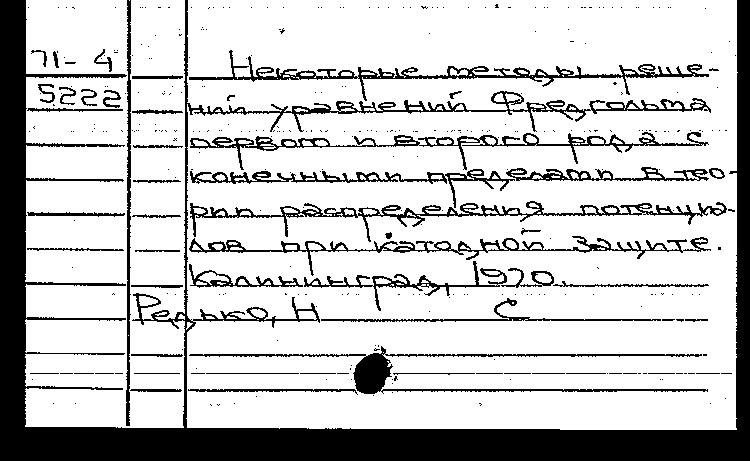 71-4 Некоторые методы реше-
5222 ний уравнений Фредгольма
первого и второго рода с
конечными пределами в тео-
рии распределения потенциа-
лов при катодной защите.
Калининград, 1970.
Редько, Н С